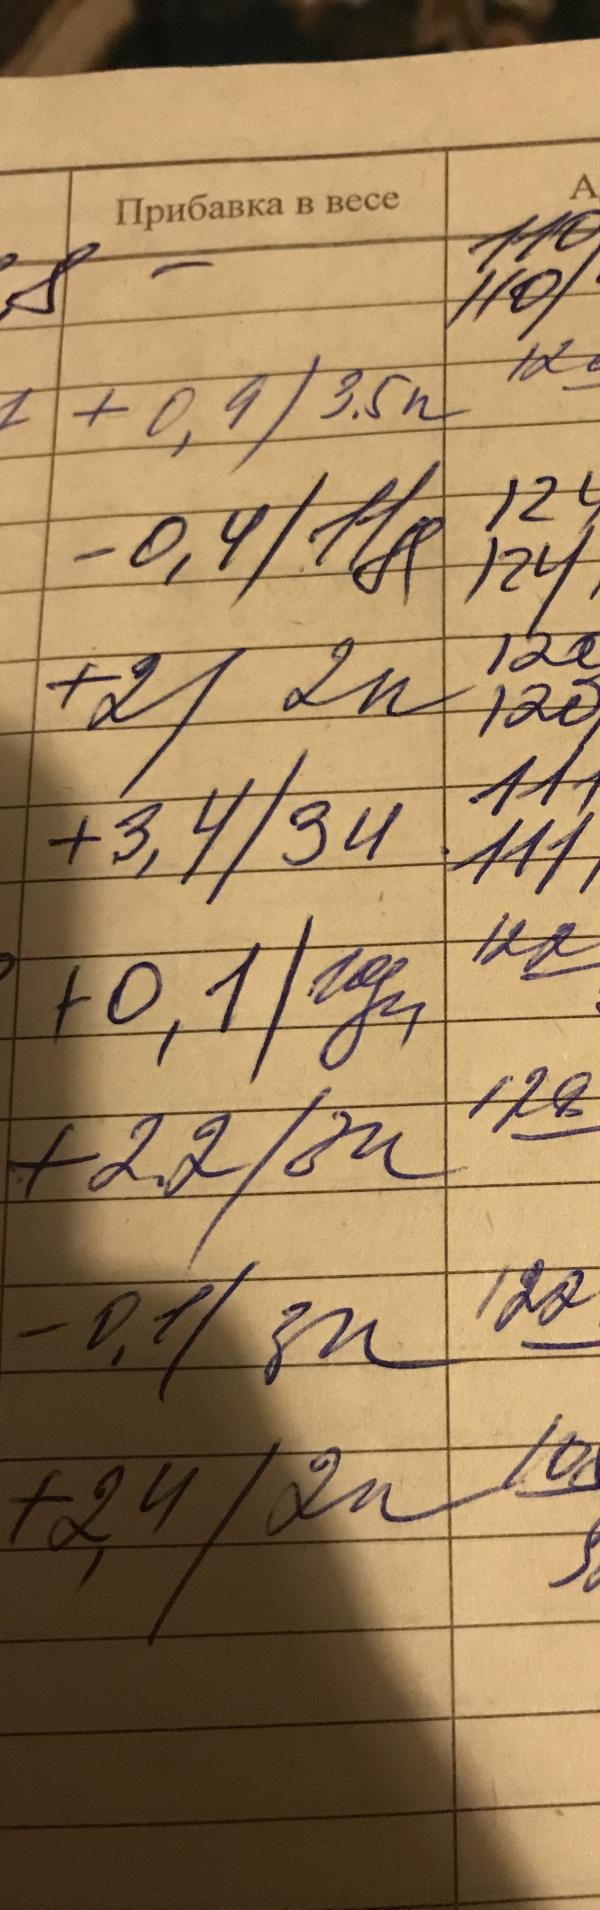 Прибавка в весе А
,8 – 110
110/
+0,9/3.5н 12
-0,4/11 124
124/
+2/ 2н 120
120
+3,4/3н 111
111
+0,1/ 122
+2.2/3н 128
-0,1/ 3н 122
+2,4/2н 10